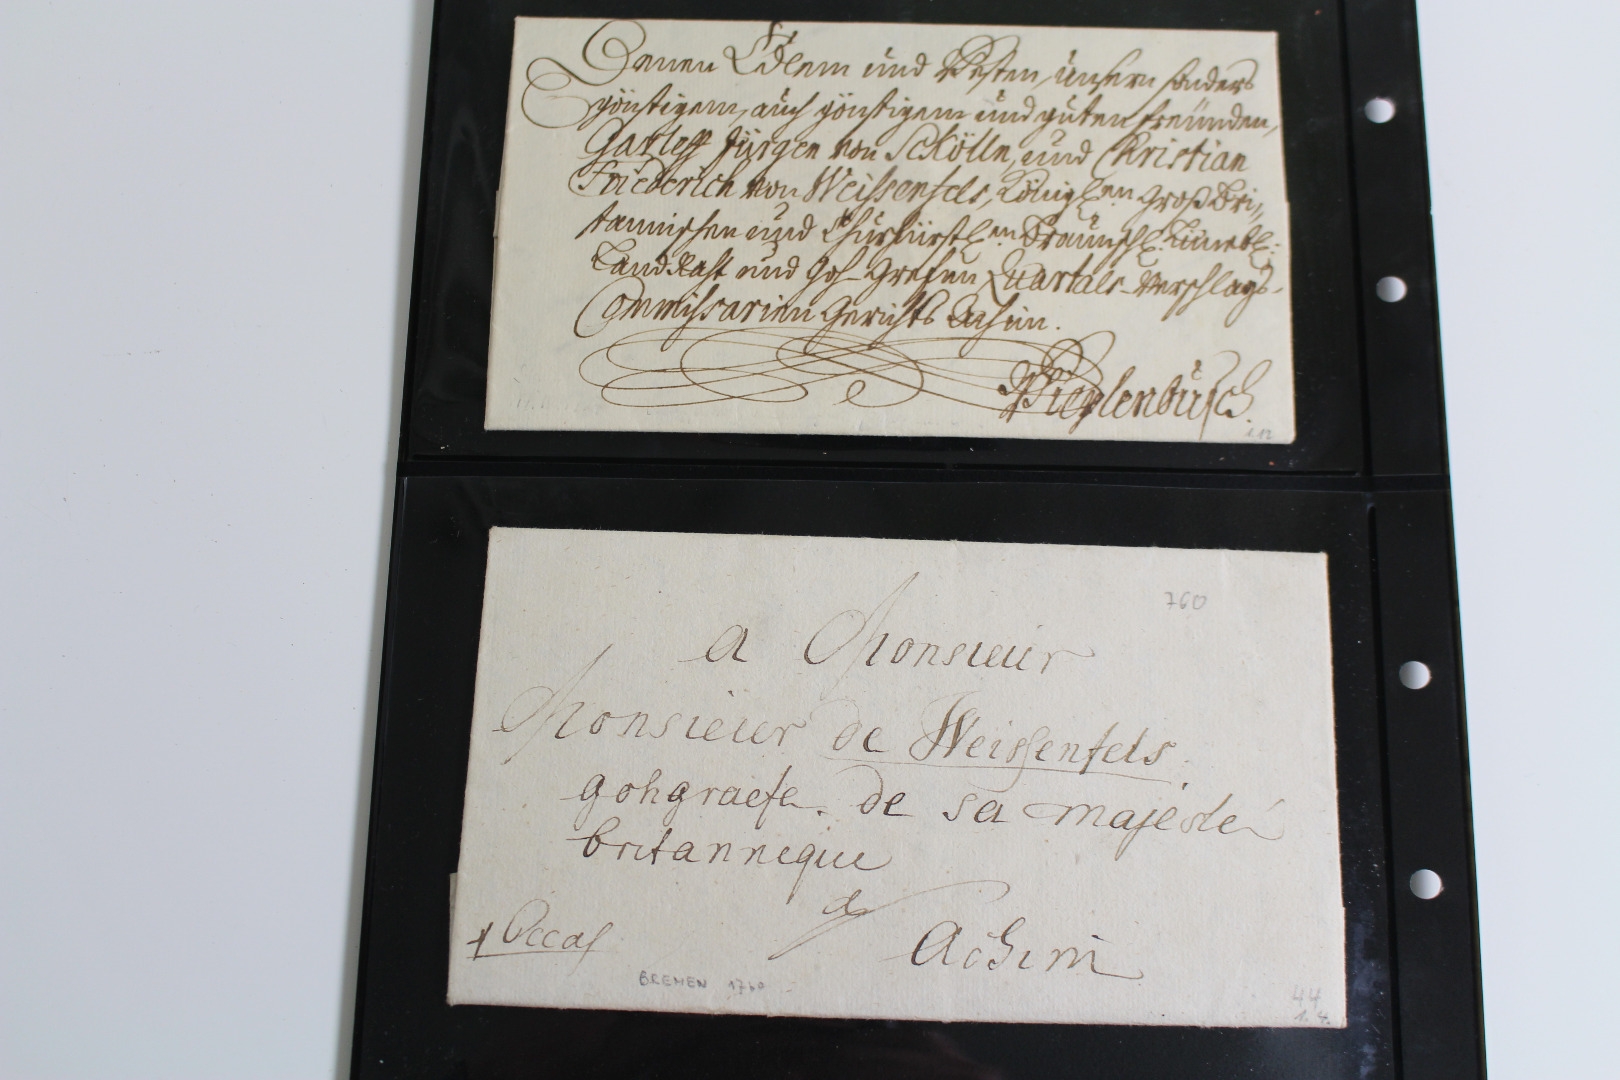 Denen Edlem und Vesten, unsern sonders
günstigem, auch günstigem und guten freünden,
Garleff Jürgen von Schölln, und Christian
Friederich von Weissenfels, Königlen Groß Bri„
tannischen und Churfürstlen Braunschl. Lünebl.
Landraht und Goh-Grefen, Quartals-Verschlags-
Commissarien Gerichts Achim.
760
a Monsieur
Monsieur de Weissenfels.
gohgraefe. de sa majesté
britanneque
Occas
a
Achim
BREMEN 1760
44
1.4.
1.12